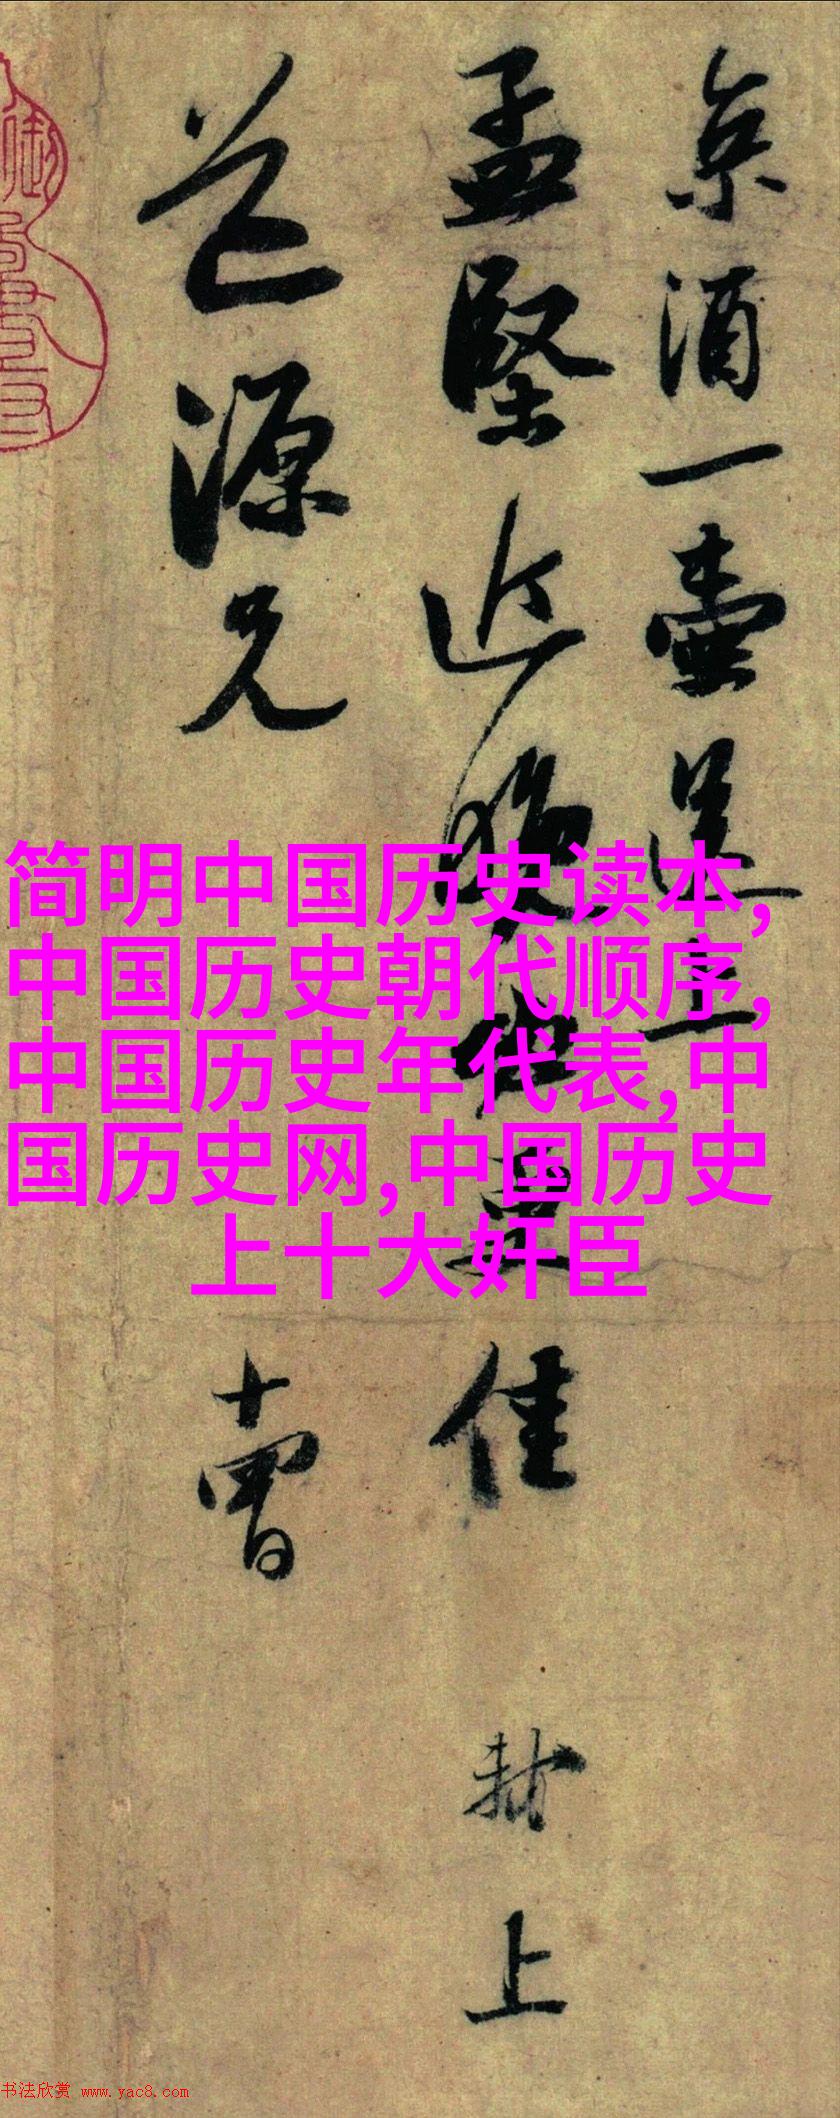 京酒一壺送上
孟堅近晚更佳 軾上
道源兄 十四日
简明中国历史读本,
中国历史朝代顺序,
中国历史年代表,中
国历史网,中国历史
上十大奸臣
书法欣赏 www.yac8.com